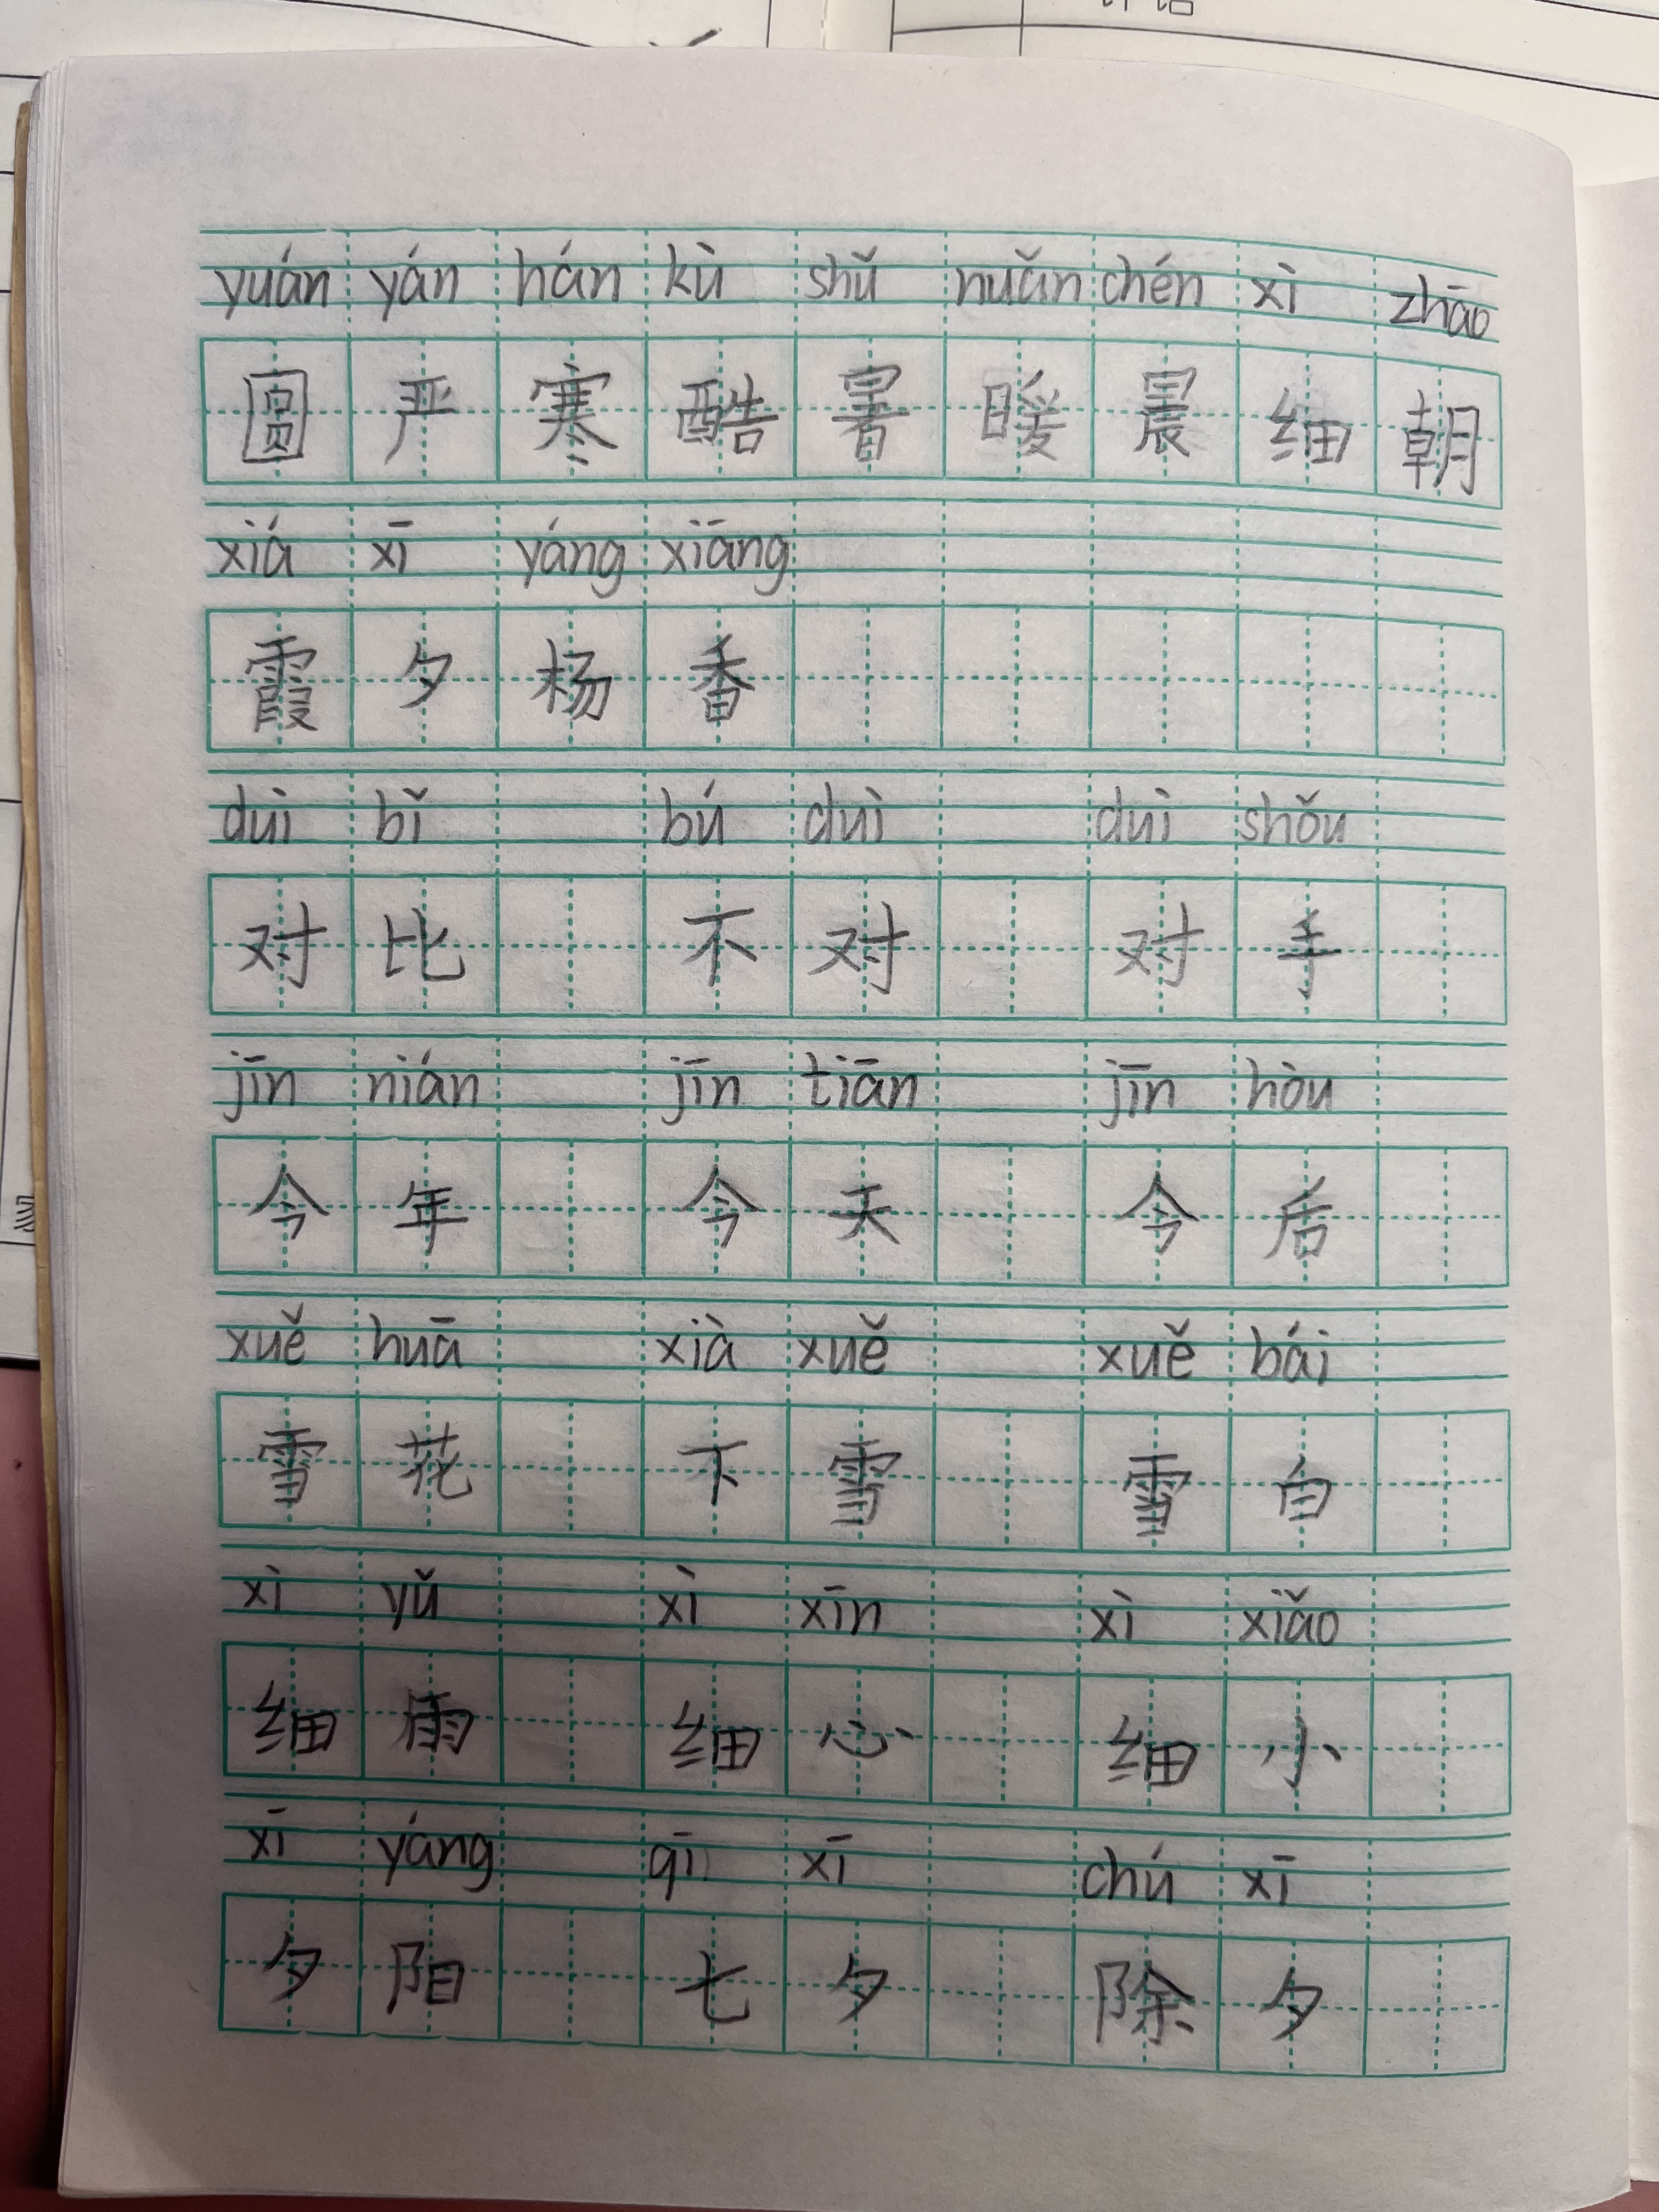 评语
yuán yán hán kù shǔ nuǎn chén xì zhāo
圆 严 寒 酷 暑 暖 晨 细 朝
xiá xī yáng xiāng
霞 夕 杨 香
duì bǐ bú duì duì shǒu
对 比 不 对 对 手
jīn nián jīn tiān jīn hòu
今 年 今 天 今 后
xuě huā xià xuě xuě bái
雪 花 下 雪 雪 白
xì yǔ xì xīn xì xiǎo
细 雨 细 心 细 小
xī yáng qī xī chú xī
夕 阳 七 夕 除 夕